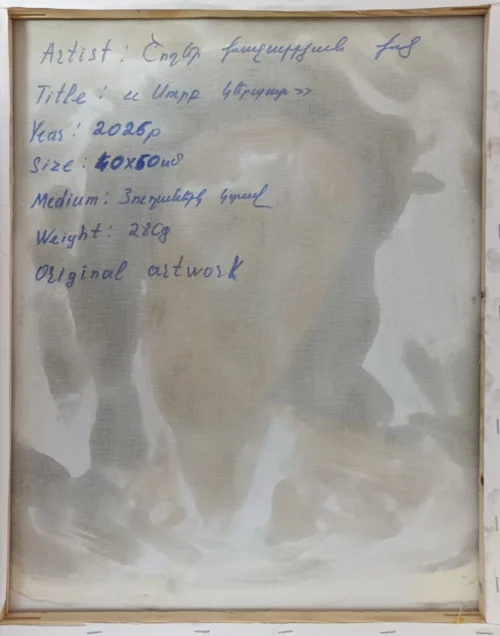 Artist: Շողեր
Title: « Սուրբ կերպար »
Year: 2025թ
Size: 40x50սմ
Medium: Յուղաներկ կտավ
Weight: 280g
Original artwork